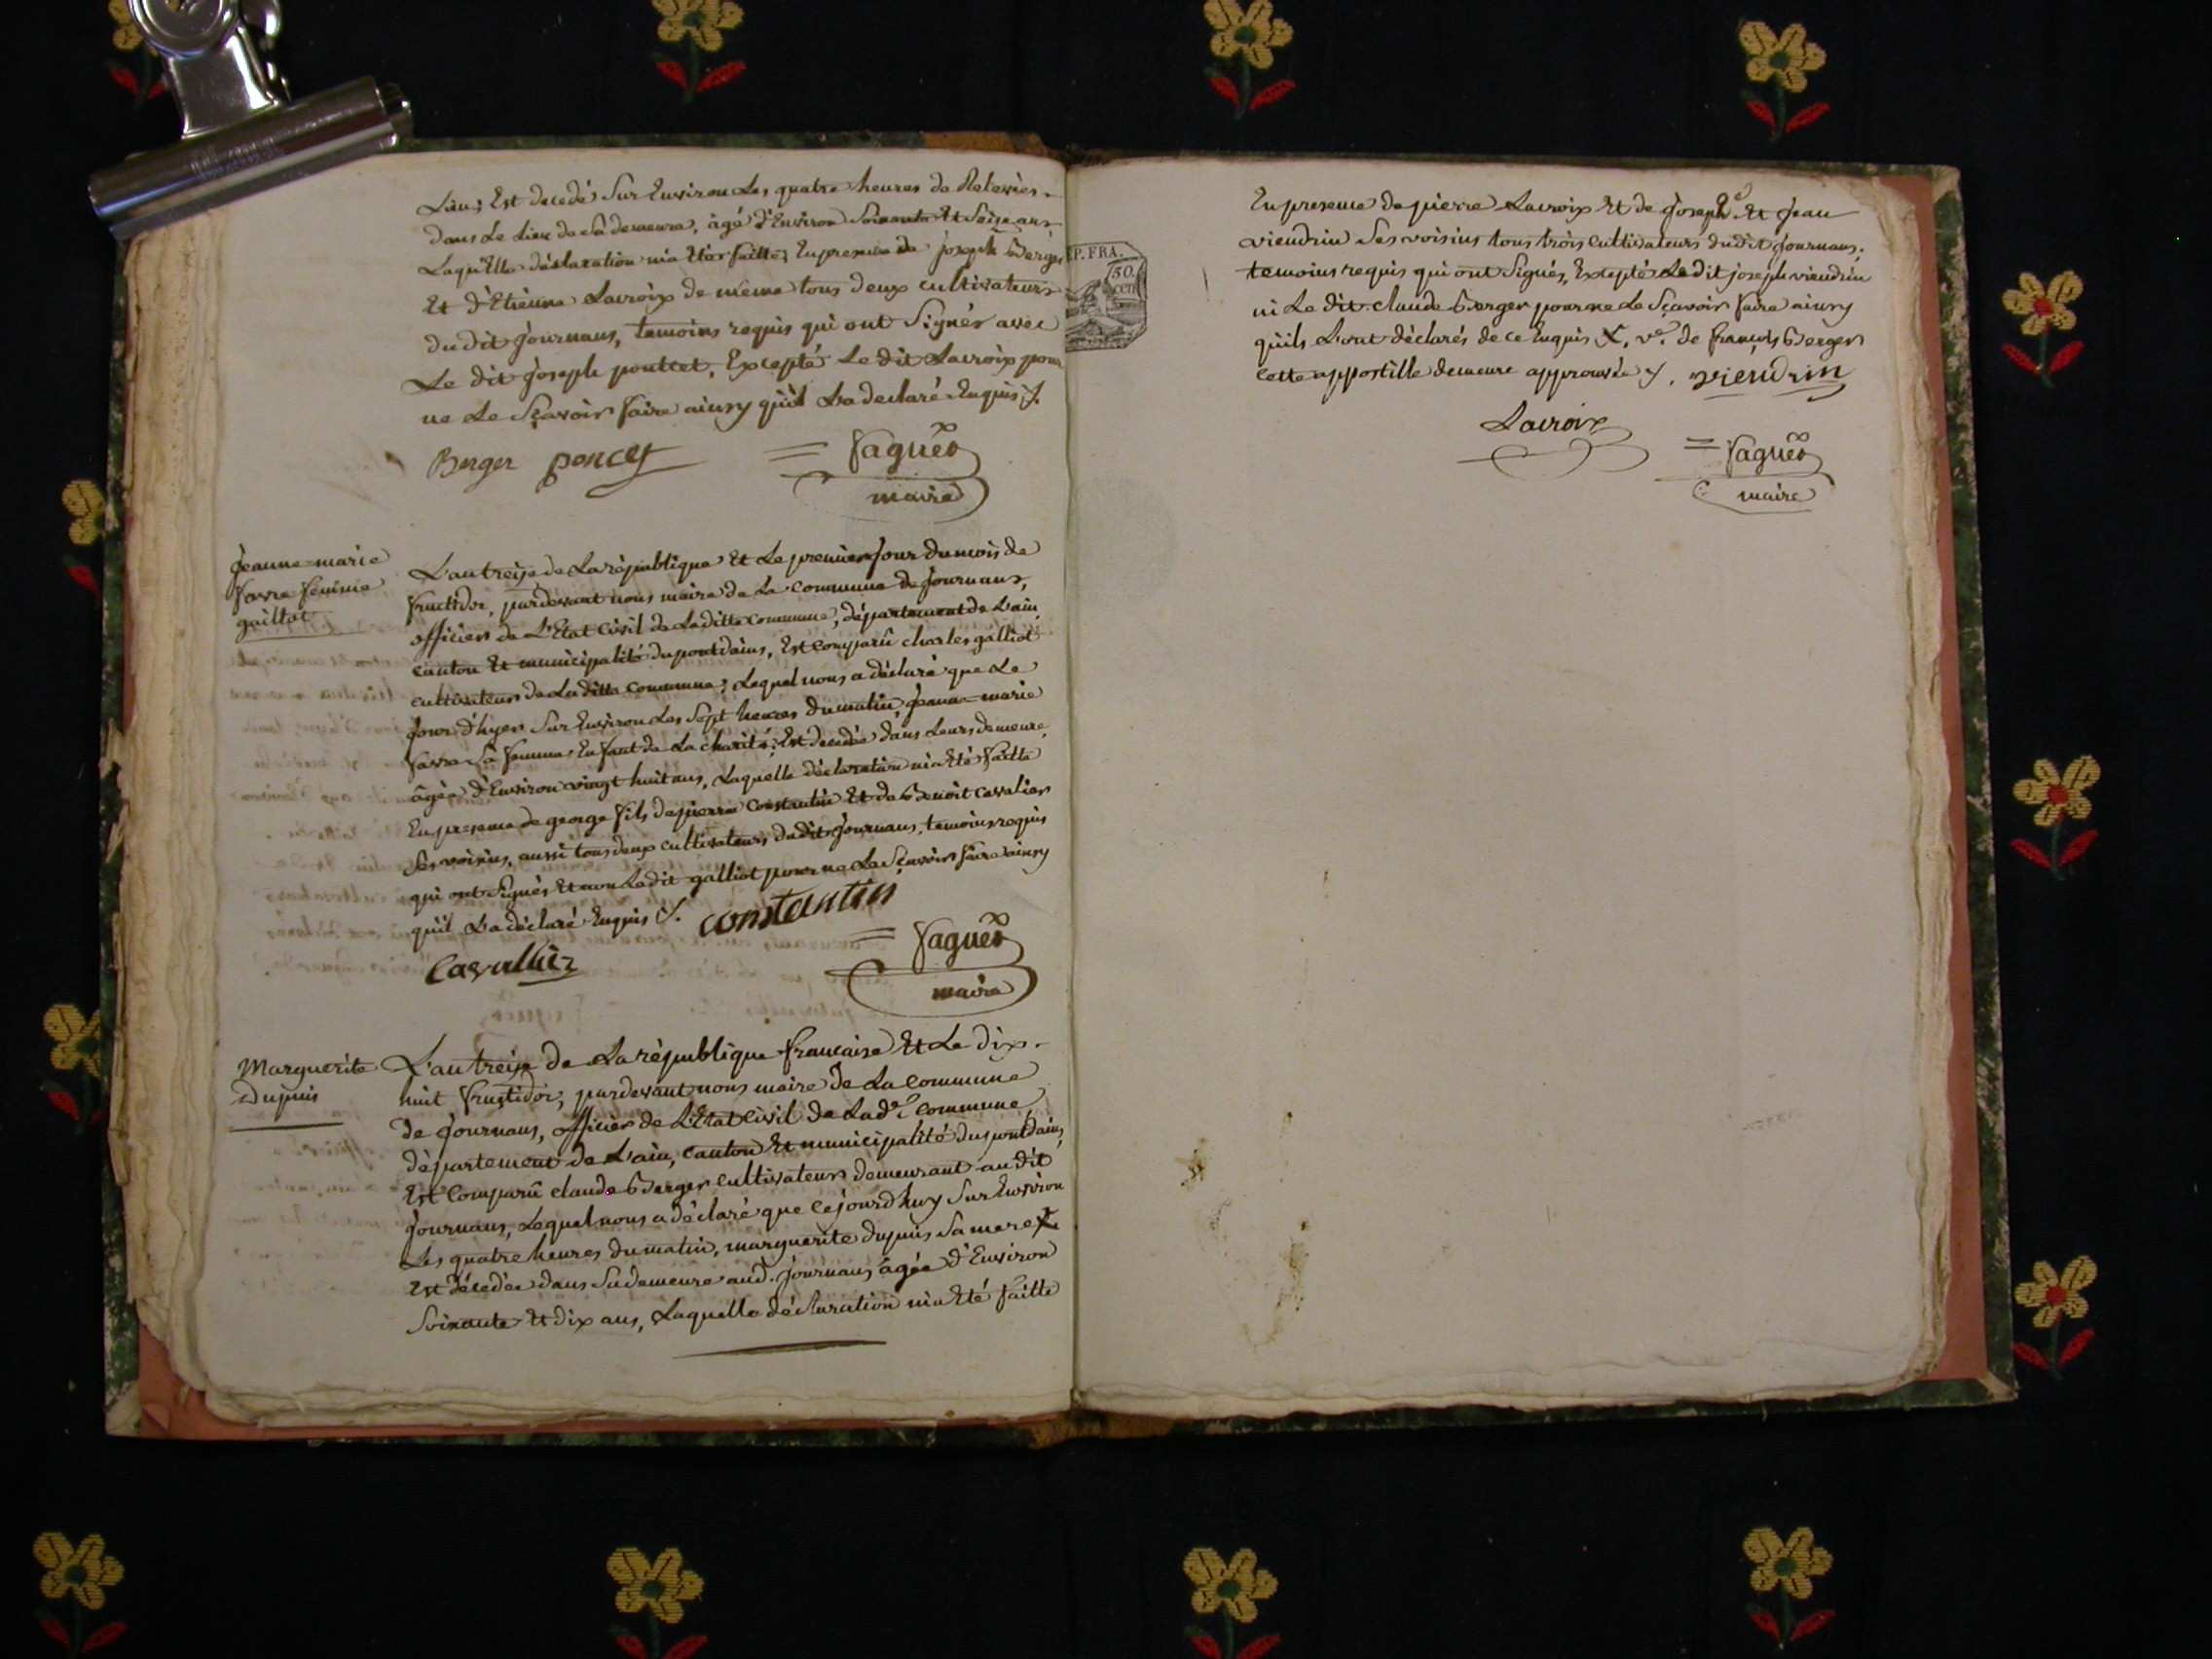 Lieu; Est decedé Sur Environ Les quatre heures de Relevées.
dans Le Lieu de Sa demeure, âgé d'Environ Soixante Et Seize ans
Laqu'Elle déclaration m'a Eté faitte; En presence de joseph Berger
Et d'Etienne Lacroix de même tous deux cultivateurs
du dit journans, temoins requis qui ont Signés avec
Le dit joseph pontcet, Excepté Le dit Lacroix pour
ne Le Sçavoir faire ainsy qu'il L'a declaré Enquis
Berger poncet = faguês
maire
jeanne-marie
favre femme
galliot
L'an treize de La république Et Le premier jour du mois de
fructidor, pardevant nous maire de La commune de journans,
officier de L'Etat Civil de Laditte commune, département de L'ain
canton Et municipalité du pontdains, Est comparû charles galliot
cultivateur de La ditte commune; Lequel nous a déclaré que Le
jour d'hyer Sur Environ Les Sept heures du matin, jeanne-marie
favre Sa femme Enfant de La charité; Est decedée dans Leurs demeure,
âgée d'Environ vingt huit ans, Laquelle déclaration m'a Eté faitte
En presence de george fils de pierre Constantin Et de Benoit Cavalier
Ses voisins, aussi tous deux cultivateurs dudit journans, temoins requis
qui ont Signés Et non Le dit galliot pour ne Le Sçavoir faire ainsy
qu'il L'a déclaré Enquis constantin
Cavallier = faguês
maire
Marguerite
Dupuis
L'an treize de La république française Et Le dix-
huit fructidor; pardevant nous maire de La commune
de journans, officier de L'Etat Civil de Lad.e commune,
département de L'ain, canton Et municipalité du pontdains,
Est Comparû claude Berger cultivateur demeurant au dit
journans, Lequel nous a déclaré que Cejourd'huy Sur Environ
Les quatre heures du matin, marguerite dupuis Sa mere X
Est décedée dans Sa demeure aud. journans âgée d'Environ
Soixante Et dix ans, Laquelle déclaration m'a Eté faitte
P. FRA.
50.
cen
En presence de pierre Lacroix Et de joseph Et jean
viendrin Ses voisins tous trois cultivateurs du dit journans;
temoins requis qui ont Signés, Excepté Le dit joseph viendrin
ni Le dit claude Berger pour ne Le Sçavoir faire ainsy
qu'ils L'ont déclarés de ce Enquis X. v.e de françois Berger
Cette appostille demeure approuvée viendrin
Lacroix = faguês
maire